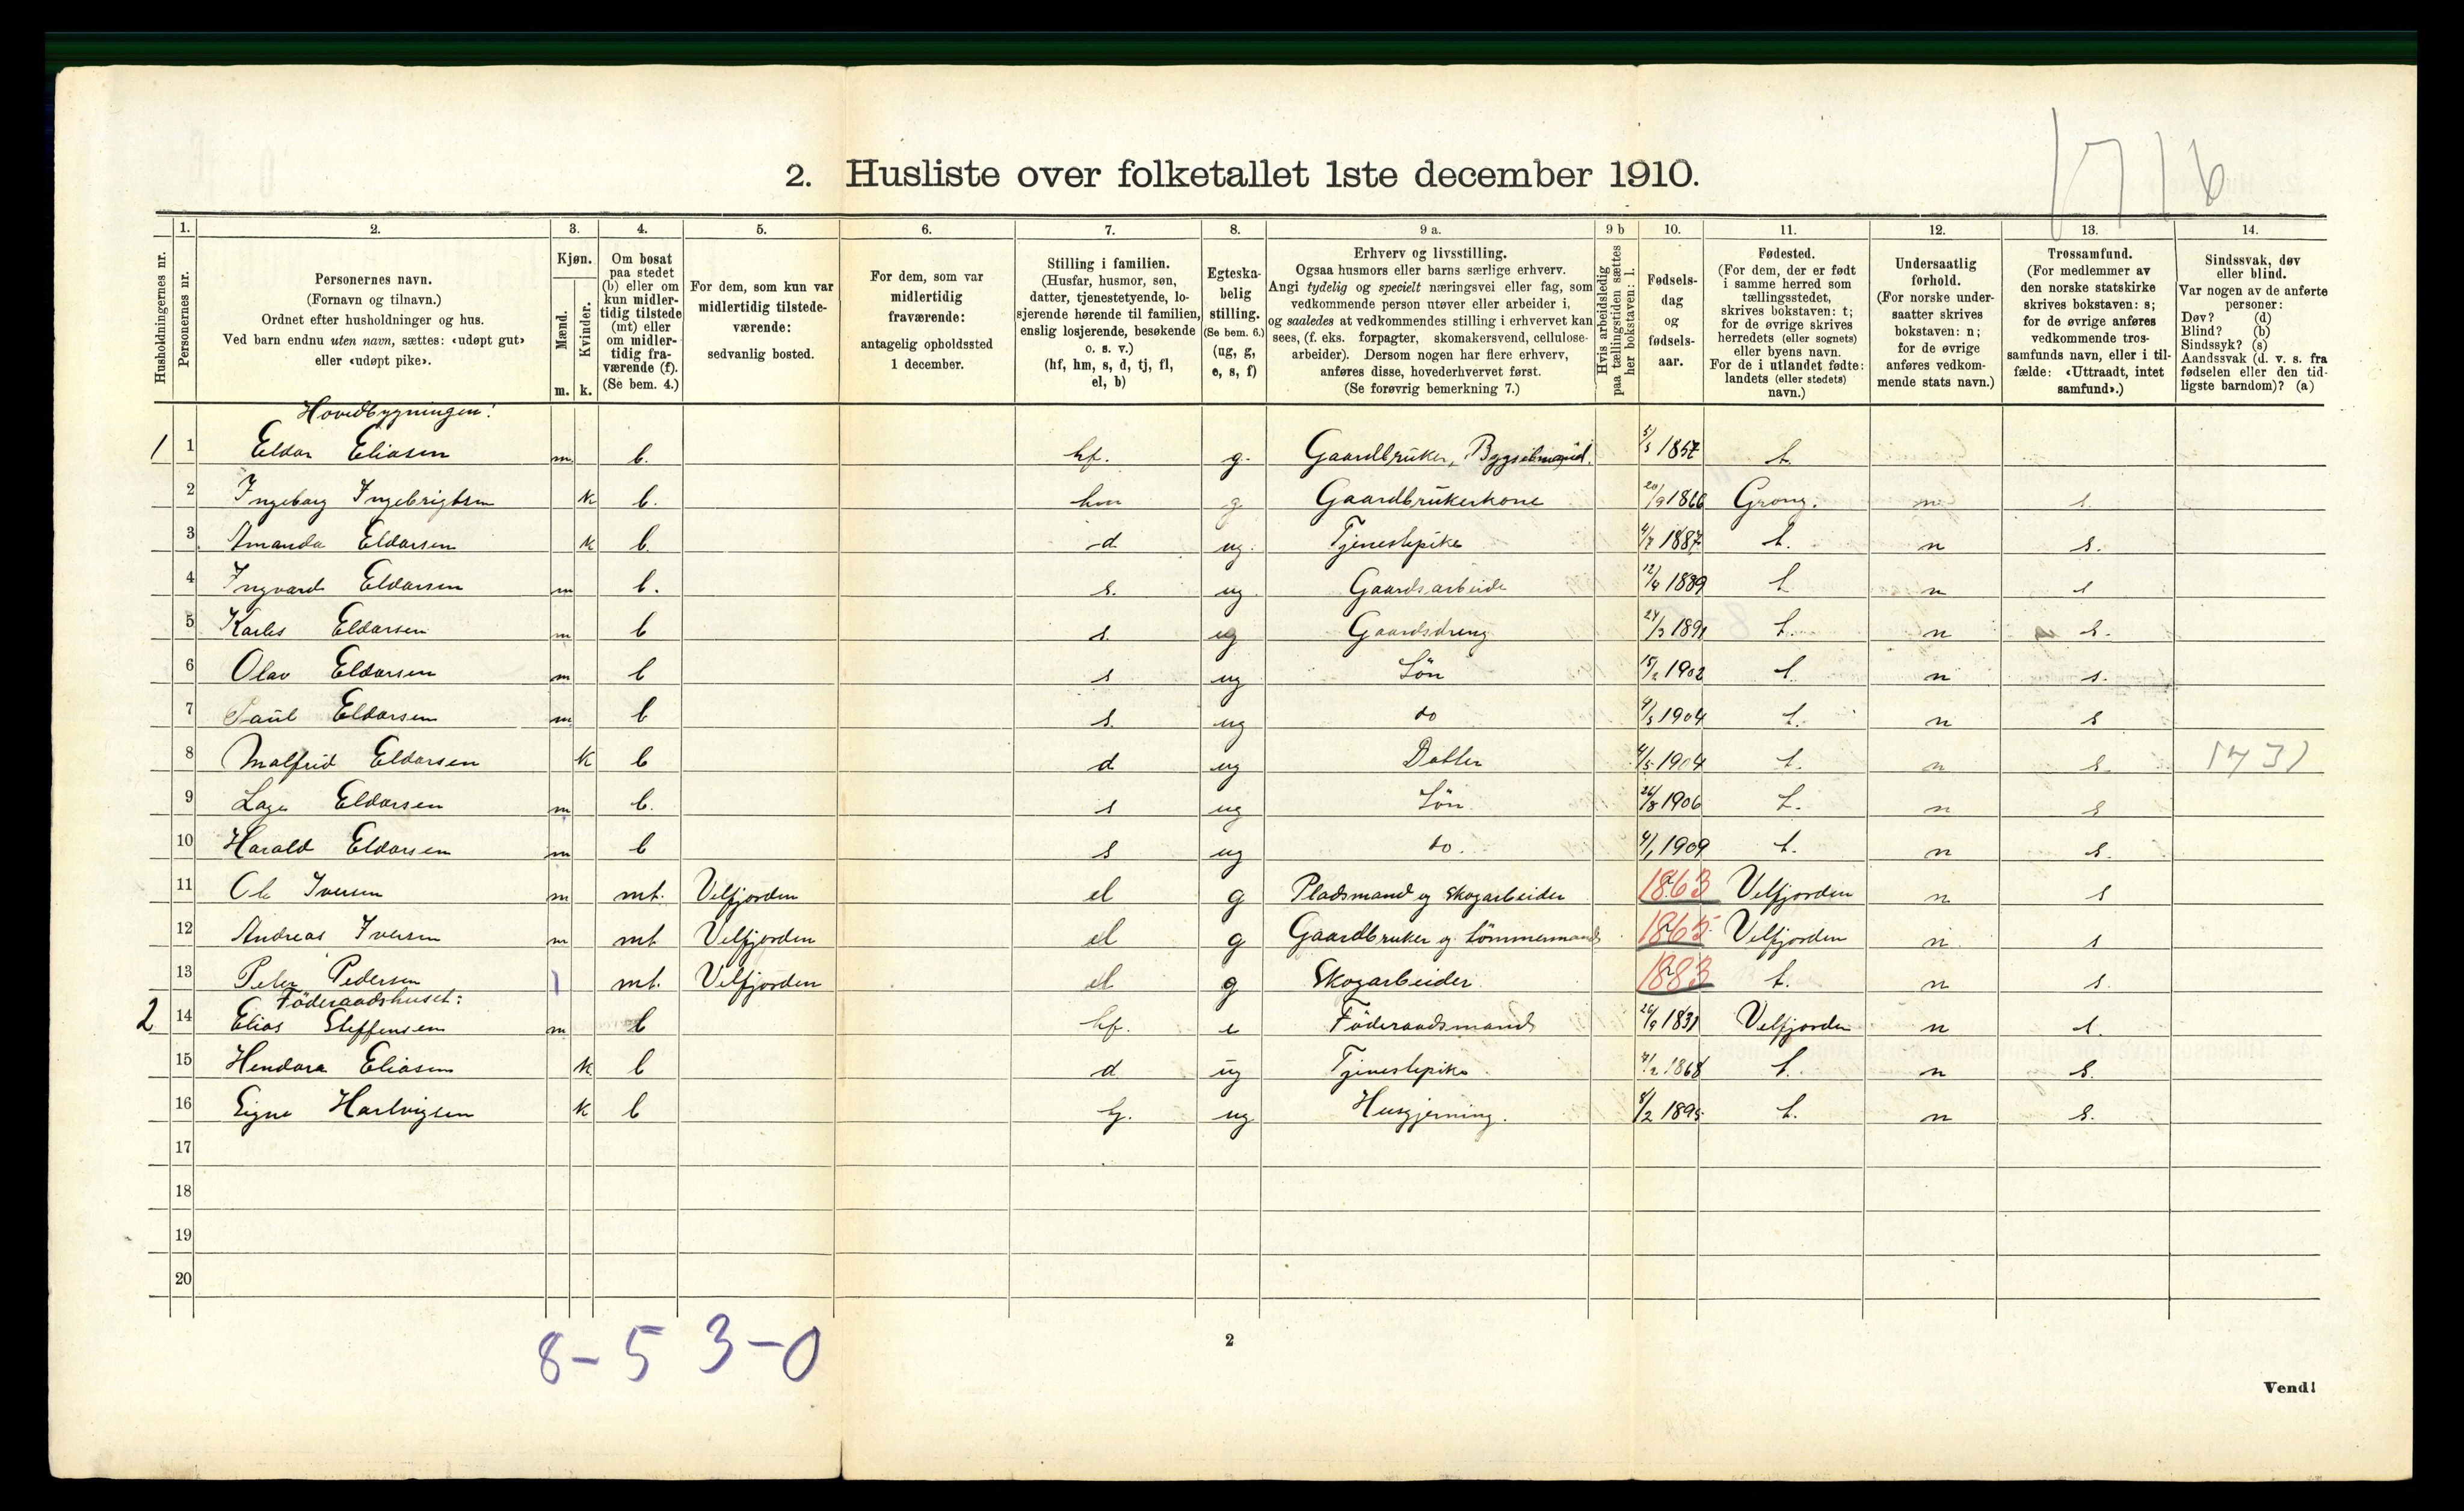 1716
2. Husliste over folketallet 1ste december 1910.
Husholdningernes nr.
1.
Personernes nr.
2.
Personernes navn.
(Fornavn og tilnavn.)
Ordnet efter husholdninger og hus.
Ved barn endnu uten navn, sættes: «udøpt gut»
eller «udøpt pike».
3.
Kjøn.
Mænd.
m.
Kvinder.
k.
4.
Om bosat
paa stedet
(b) eller om
kun midler-
tidig tilstede
(mt) eller
om midler-
tidig fra-
værende (f).
(Se bem. 4.)
5.
For dem, som kun var
midlertidig tilstede-
værende:
sedvanlig bosted.
6.
For dem, som var
midlertidig
fraværende:
antagelig opholdssted
1 december.
7.
Stilling i familien.
(Husfar, husmor, søn,
datter, tjenestetyende, lo-
sjerende hørende til familien,
enslig losjerende, besøkende
o. s. v.)
(hf, hm, s, d, tj, fl,
el, b)
8.
Egteska-
belig
stilling.
(Se bem. 6.)
(ug, g,
e, s, f)
9 a.
Erhverv og livsstilling.
Ogsaa husmors eller barns særlige erhverv.
Angi tydelig og specielt næringsvei eller fag, som
vedkommende person utøver eller arbeider i,
og saaledes at vedkommendes stilling i erhvervet kan
sees, (f. eks. forpagter, skomakersvend, cellulose-
arbeider). Dersom nogen har flere erhverv,
anføres disse, hovederhvervet først.
(Se forøvrig bemerkning 7.)
9 b
Hvis arbeidsledig
paa tællingstiden sættes
her bokstaven: l.
10.
Fødsels-
dag
og
fødsels-
aar.
11.
Fødested.
(For dem, der er født
i samme herred som
tællingsstedet,
skrives bokstaven: t;
for de øvrige skrives
herredets (eller sognets)
eller byens navn.
For de i utlandet fødte:
landets (eller stedets)
navn.)
12.
Undersaatlig
forhold.
(For norske under-
saatter skrives
bokstaven: n;
for de øvrige
anføres vedkom-
mende stats navn.)
13.
Trossamfund.
(For medlemmer av
den norske statskirke
skrives bokstaven: s;
for de øvrige anføres
vedkommende tros-
samfunds navn, eller i til-
fælde: «Uttraadt, intet
samfund».)
14.
Sindssvak, døv
eller blind.
Var nogen av de anførte
personer:
Døv? (d)
Blind? (b)
Sindssyk? (s)
Aandssvak (d. v. s. fra
fødselen eller den tid-
ligste barndom)? (a)
Hovedbygningen:
1 1 Eldar Eliasen m b. hf. g. Gaardbruker, Bygselmand. 5/5 1857 t.
2 Ingeborg Ingebrigtsen k b. hm g Gaardbrukerkone 20/9 1866 Grong. n s.
3 Amanda Eldarsen k b. d ug. Tjenestepike 4/7 1887 t. n s.
4 Ingvard Eldarsen m b. s. ug Gaardsarbeide 1889 t n s
5 Karles Eldarsen m b s. ug Gaardsdreng 24/3 1891 t. n s.
6 Olav Eldarsen m b s ug Sön 15/2 1902 t n s.
7 Paul Eldarsen m b s. ug do 4/5 1904 t. n s
8 Malfrid Eldarsen k b d ug Datter 4/5 1904 t. n s. 1731
9 Lage Eldarsen m b. s ug Sön 26/8 1906 t. n s
10 Harald Eldarsen m b s ug do. 4/1 1909 t. n s.
11 Ole Iversen m mt. Velfjorden el g Pladsmand og Skogarbeider 1863 Velfjorden n s
12 Andreas Iversen m mt Velfjorden el g Gaardbruker og tömmermand 1865 Velfjorden n s
13 Peter Pedersen 1 mt. Velfjorden el g Skogarbeider 1883 t. n s.
Föderaadshuset:
2 14 Elias Steffensen m b hf. e Föderaadsmand 26/9 1831 Velfjorden n s.
15 Hendora Eliasen k b d ug Tjenestepike 7/2 1868 t. n s.
16 Signe Hartvigsen k b tj. ug Husgjerning. 8/2 1895 t. n s.
17
18
19
20
8 - 5 3 - 0
2
Vend!